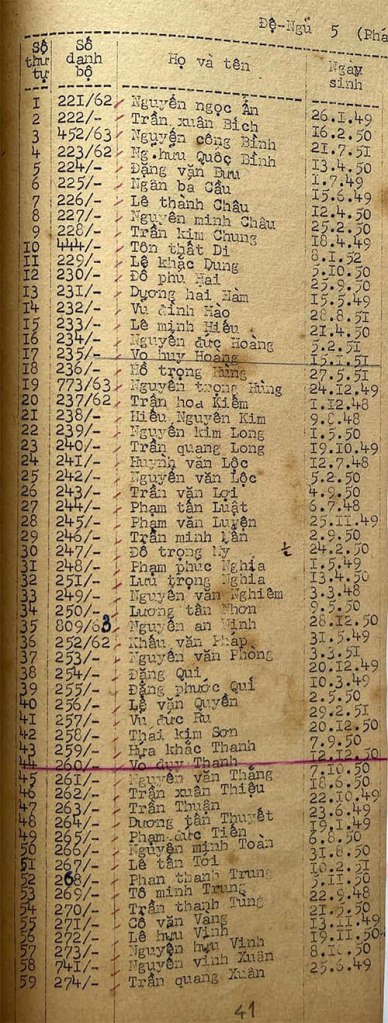 Đệ-Ngũ 5 (Phá
Số thư tự Số danh bộ Họ và tên Ngày sinh
I 22I/62 Nguyễn ngọc Ấn 26.I.49
2 222/- Trần xuân Bích I6.2.50
3 452/63 Nguyễn công Bỉnh 2I.7.5I
4 223/62 Ng.hưu Quốc Bỉnh I3.4.50
5 224/- Đặng văn Bưu I.7.49
6 225/- Ngân ba Cầu I5.6.49
7 226/- Lê thành Châu I2.4.50
8 227/- Nguyễn minh Châu 25.2.50
9 228/- Trần kim Chung I8.4.49
IO 444/- Tôn thất Di 8.I.52
II 229/- Lê khắc Dung 5.IO.50
I2 230/- Đỗ phú Hai 25.9.50
I3 23I/- Dương hai Hàm I5.5.49
I4 232/- Vu đình Hào 28.8.5I
I5 233/- Lê minh Hiếu 2I.4.50
I6 234/- Nguyễn đức Hoàng 5.2.5I
I7 235/- Vo huy Hoang I5.I.5I
I8 236/- Hồ trọng Hùng 27.5.5I
I9 773/63 Nguyễn trọng Hùng 24.I2.49
20 237/62 Trần hoa Kiểm I.I2.48
2I 238/- Hiếu Nguyễn Kim 9.8.48
22 239/- Nguyễn kim Long I.5.50
23 240/- Trần quang Long I9.IO.49
24 24I/- Huynh văn Lộc I2.7.48
25 242/- Nguyễn văn Lộc 5.2.50
26 243/- Trần văn Lợi 4.9.50
27 244/- Phạm tấn Luật 6.7.48
28 245/- Phạm văn Luyện 25.II.49
29 246/- Trần minh 2.9.50
30 247/- Đỗ trọng 24.2.50
3I 248/- Phạm phuc Nghĩa I.5.49
32 25I/- Lưu trọng Nghĩa I3.4.50
33 249/- Nguyễn văn Nghiêm 3.3.48
34 250/- Lương tấn Nhơn 9.5.50
35 809/63 Nguyễn an Ninh 28.I2.50
36 252/62 Khấu văn Pháp 3I.5.49
37 253/- Nguyễn văn Phong 3.3.5I
38 254/- Đặng Qui 20.I2.49
39 255/- Đặng phước Quí IO.3.49
40 256/- Lê văn Quyền 2.5.50
4I 257/- Vu đưc Ru 29.2.5I
42 258/- Thai kim Sơn 20.I2.50
43 259/- Hứa khắc Thanh 7.9.50
44 260/- Vo duy Thanh I2.I2.50
45 26I/- Nguyễn văn Thắng 7.IO.50
46 262/- Trần xuân Thiệu I8.6.50
47 263/- Trần Thuận 22.IO.49
48 264/- Dương tấn Thuyết 23.6.49
49 265/- Phạm đưc Tiến I9.I.49
50 266/- Nguyễn minh Toàn 6.8.50
5I 267/- Lê tấn Tới 3I.8.50
52 268/- Phan thanh Trung IO.2.5I
53 269/- Tô minh Trung 5.II.50
54 270/- Trần thanh Tùng 22.9.48
55 27I/- Cổ văn Vàng 2I.5.50
56 272/- Lê hưu Vinh I3.II.49
57 273/- Nguyễn hưu Vinh I9.II.50
58 74I/- Nguyễn vinh Xuân 8.IO.50
59 274/- Trần quang Xuân 25.6.49
41